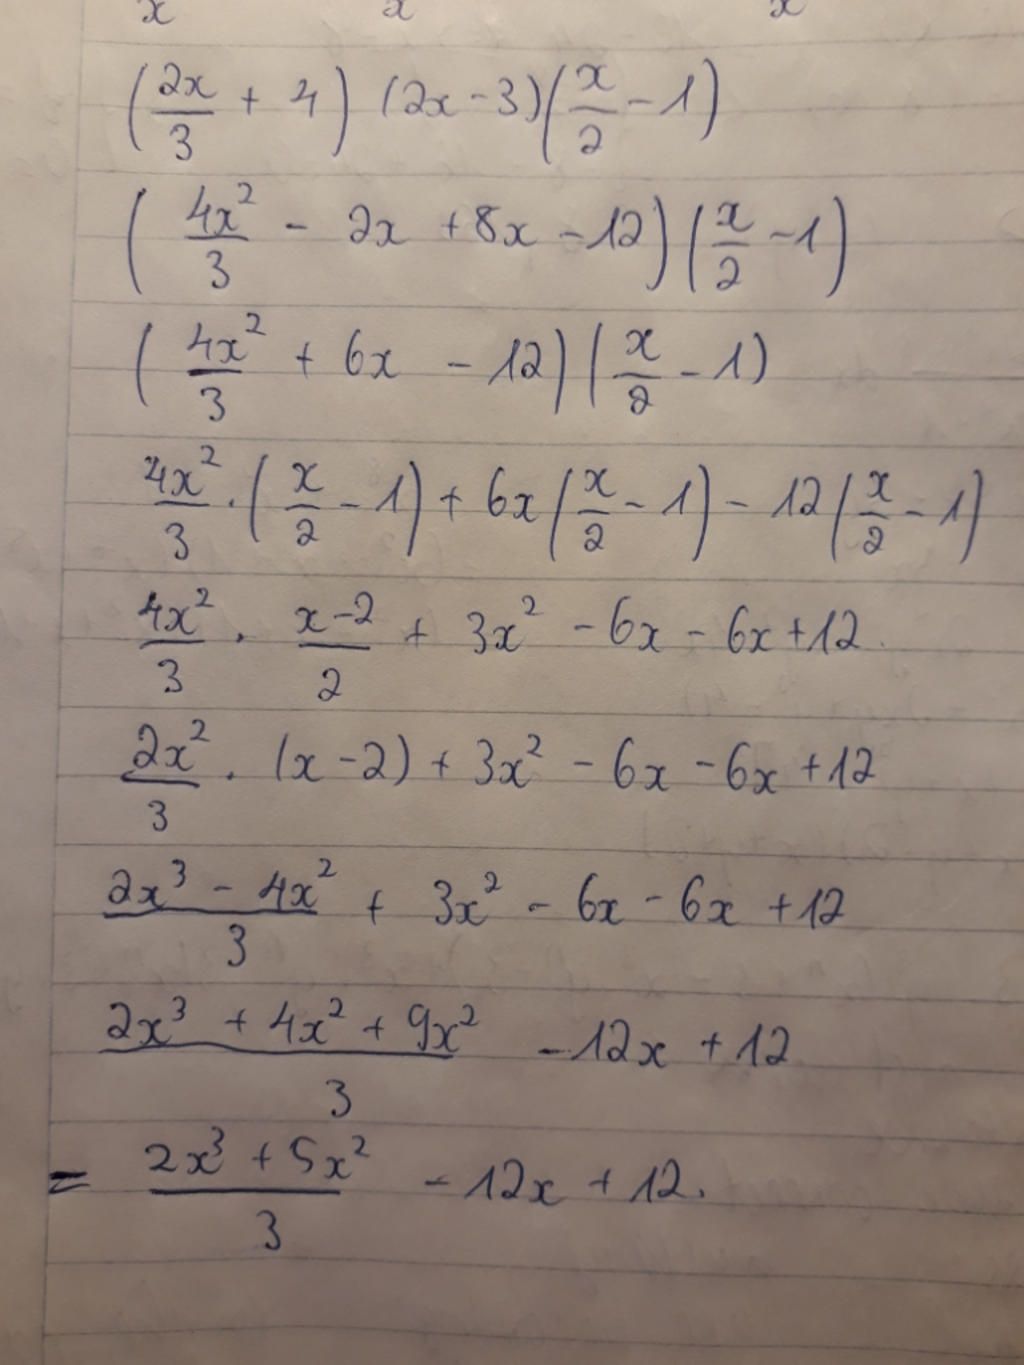 x x x
(2x/3 + 4) (2x - 3)(x/2 - 1)
(4x²/3 - 2x + 8x - 12)(x/2 - 1)
(4x²/3 + 6x - 12)(x/2 - 1)
4x²/3 · (x/2 - 1) + 6x(x/2 - 1) - 12(x/2 - 1)
4x²/3 · (x-2)/2 + 3x² - 6x - 6x + 12
2x²/3 · (x - 2) + 3x² - 6x - 6x + 12
(2x³ - 4x²)/3 + 3x² - 6x - 6x + 12
(2x³ + 4x² + 9x²)/3 - 12x + 12
= (2x³ + 5x²)/3 - 12x + 12.